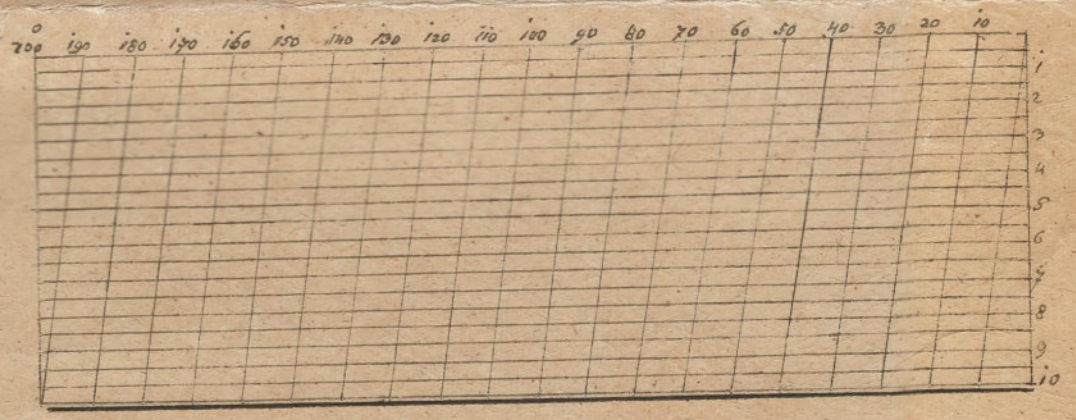 0
200 190 180 170 160 150 140 130 120 110 100 90 80 70 60 50 40 30 20 10
1
2
3
4
5
6
7
8
9
10